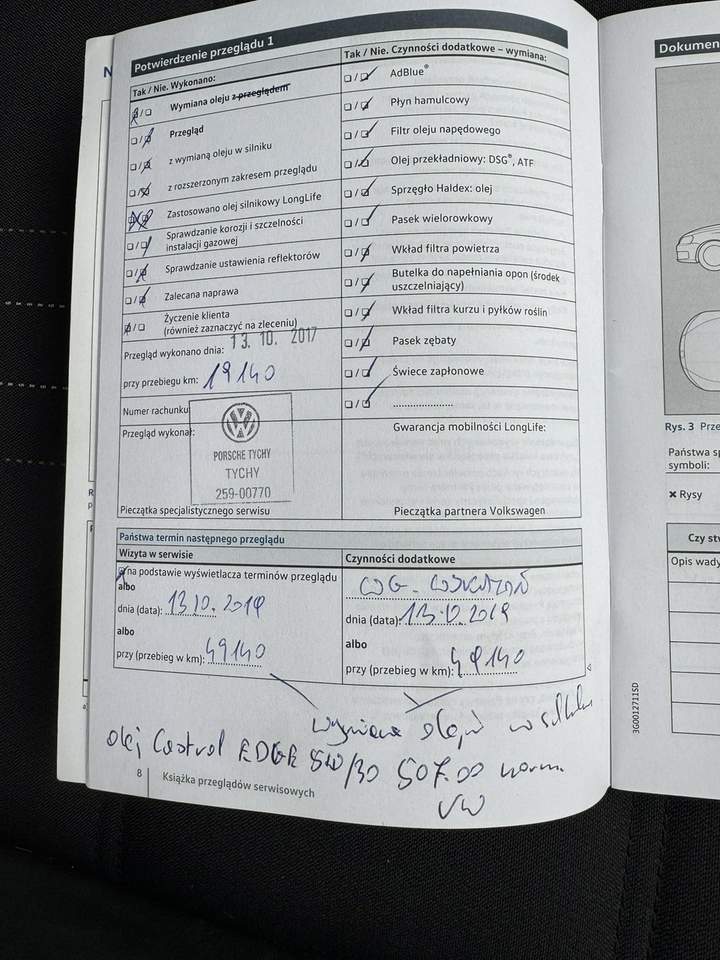 Potwierdzenie przeglądu 1
Tak / Nie. Wykonano:
Wymiana oleju z przeglądem
Przegląd
z wymianą oleju w silniku
z rozszerzonym zakresem przeglądu
Zastosowano olej silnikowy LongLife
Sprawdzanie korozji i szczelności
instalacji gazowej
Sprawdzanie ustawienia reflektorów
Zalecana naprawa
Życzenie klienta
(również zaznaczyć na zleceniu)
Przegląd wykonano dnia: 13. 10. 2017
przy przebiegu km: 19140
Numer rachunku
Przegląd wykonał:
PORSCHE TYCHY
TYCHY
259-00770
Pieczątka specjalistycznego serwisu
Tak / Nie. Czynności dodatkowe – wymiana:
AdBlue®
Płyn hamulcowy
Filtr oleju napędowego
Olej przekładniowy: DSG®, ATF
Sprzęgło Haldex: olej
Pasek wielorowkowy
Wkład filtra powietrza
Butelka do napełniania opon (środek
uszczelniający)
Wkład filtra kurzu i pyłków roślin
Pasek zębaty
Świece zapłonowe
....................
Gwarancja mobilności LongLife:
Pieczątka partnera Volkswagen
Państwa termin następnego przeglądu
Wizyta w serwisie
na podstawie wyświetlacza terminów przeglądu
albo
dnia (data): 13.10.2019
albo
przy (przebieg w km): 49140
Czynności dodatkowe
WG. WSKAZAŃ
dnia (data): 13.10.2019
albo
przy (przebieg w km): 49140
wymiana oleju w silniku
olej Castrol EDGE 5W/30 507.00 norma
VW
8 Książka przeglądów serwisowych
3G0012711SD
Dokumen
Rys. 3 Prze
Państwa sp
symboli:
× Rysy
Czy stw
Opis wady